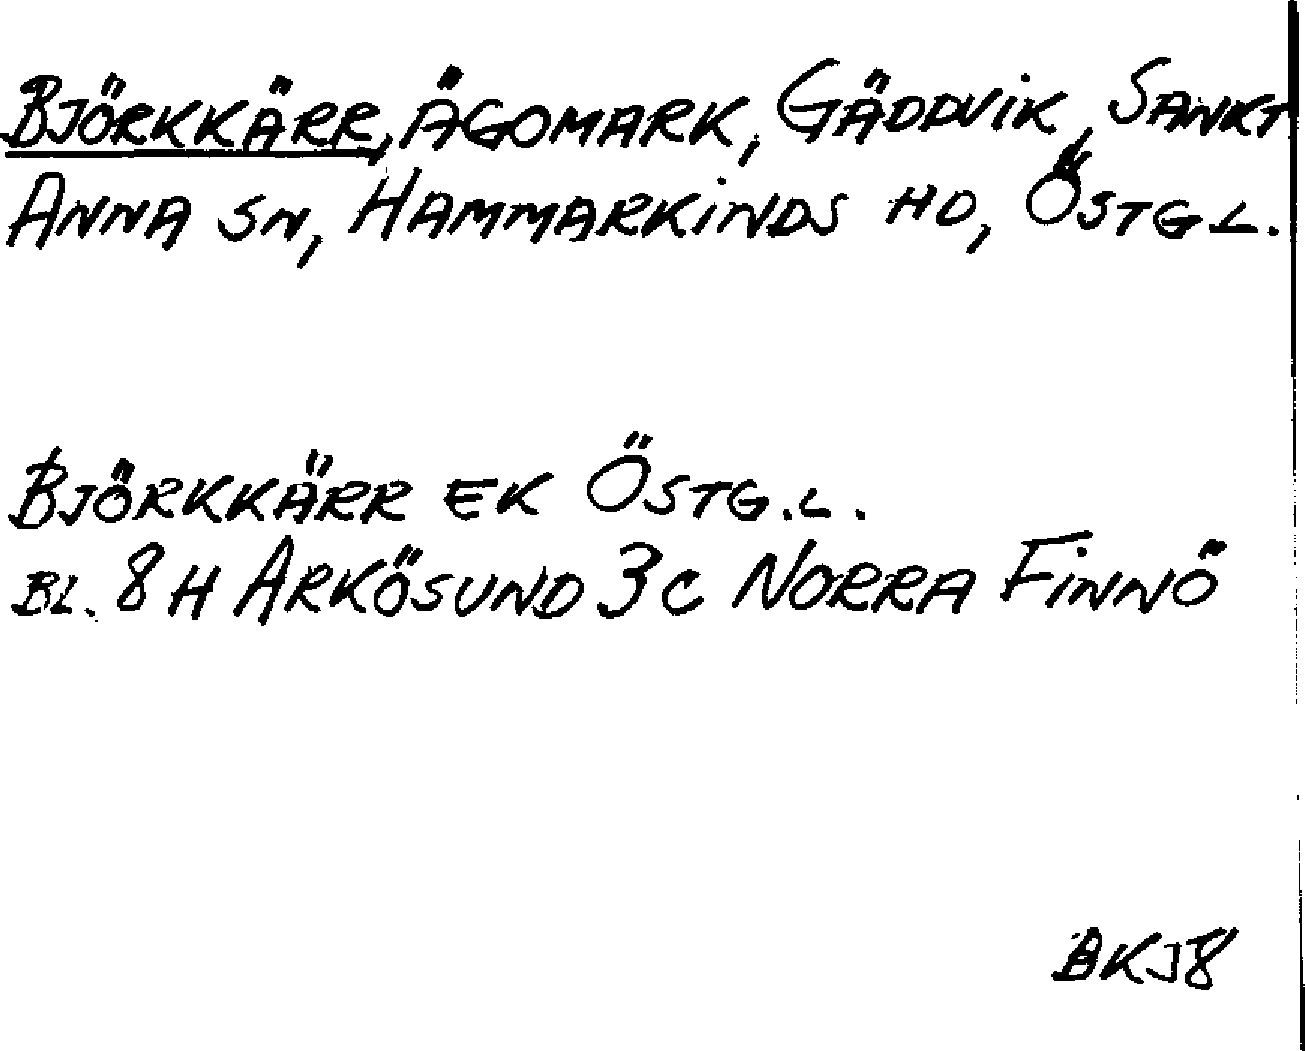 BJÖRKKÄRR, ÄGOMARK, GÄDDVIK, SANKT
ANNA SN, HAMMARKINDS HD, ÖSTG L.
BJÖRKKÄRR EK ÖSTG.L.
BL. 8 H ARKÖSUND 3 C NORRA FINNÖ